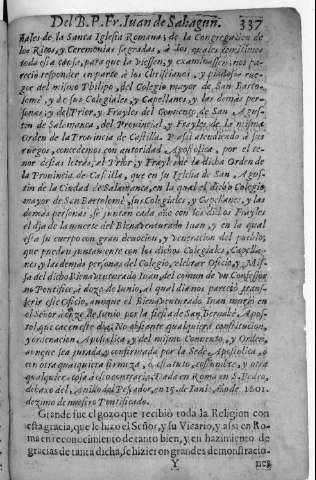 Del B.P.Fr.Iuan de Sahagũ. 337
nales de la Santa Iglesia Romana, de la Congregacion de
los Ritos, y Ceremonias sagradas, à los quales remitimos
toda esta cosa, para que la viessen, y examinassen: nos pa-
reciò responder en parte à los Christianos, y piadosos rue-
gos del mismo Philipo, del Colegio mayor de San Barto-
lomè, y de sus Colegiales, y Capellanes, y las demàs per-
sonas; y del Prior, y Frayles del Convento de San Agus-
tin de Salamanca, del Provincial, y Frayles de la misma
Orden de la Provincia de Castilla. Y assi atendiendo à sus
ruegos, concedemos con autoridad Apostolica, por el te-
nor destas letras, al Prior, y Frayles de la dicha Orden de
la Provincia de Castilla, que en su Iglesia de San Agus-
tin de la Ciudad de Salamanca, en la qual el dicho Colegio
mayor de San Bartolomè, sus Colegiales, y Capellanes, y las
demàs personas se juntan cada año con los dichos Frayles
el dia de la muerte del Bienaventurado Iuan, y en la qual
està su cuerpo con gran devocion, y veneracion del pueblo;
que puedan juntamente con los dichos Colegiales, Capella-
nes, y las demàs personas del Colegio, celebrar Oficio, y Mis-
sa del dicho Bienaventurado Iuan, del comun de un Confessor
no Pontifice, à doze de Iunio, al qual dia nos pareciò trans-
ferir este Oficio, aunque el Bienaventurado Iuan muriò en
el Señor à onze de Iunio, por la fiesta de San Bernabè, Apos-
tol, que cae en este dia. No obstante qualquiera constitucion,
y ordenacion, Apostolica, y del mismo Convento, y Orden,
aunque sea jurada, y confirmada por la Sede Apostolica, ò
con otra qualquiera firmeza, ò estatuto, costumbre, y otra
qualquier cosa en contrario. Dada en Roma en S. Pedro,
debaxo del Anillo del Pescador, en 15. de Iunio, año de 1601.
dezimo de nuestro Pontificado.
Grande fue el gozo que recibiò toda la Religion con
esta gracia, que le hizo el Señor, y su Vicario, y assi en Ro-
ma en reconocimiento de tanto bien, y en hazimiento de
gracias de tanta dicha, se hizieron grandes demonstracio-
Y nes